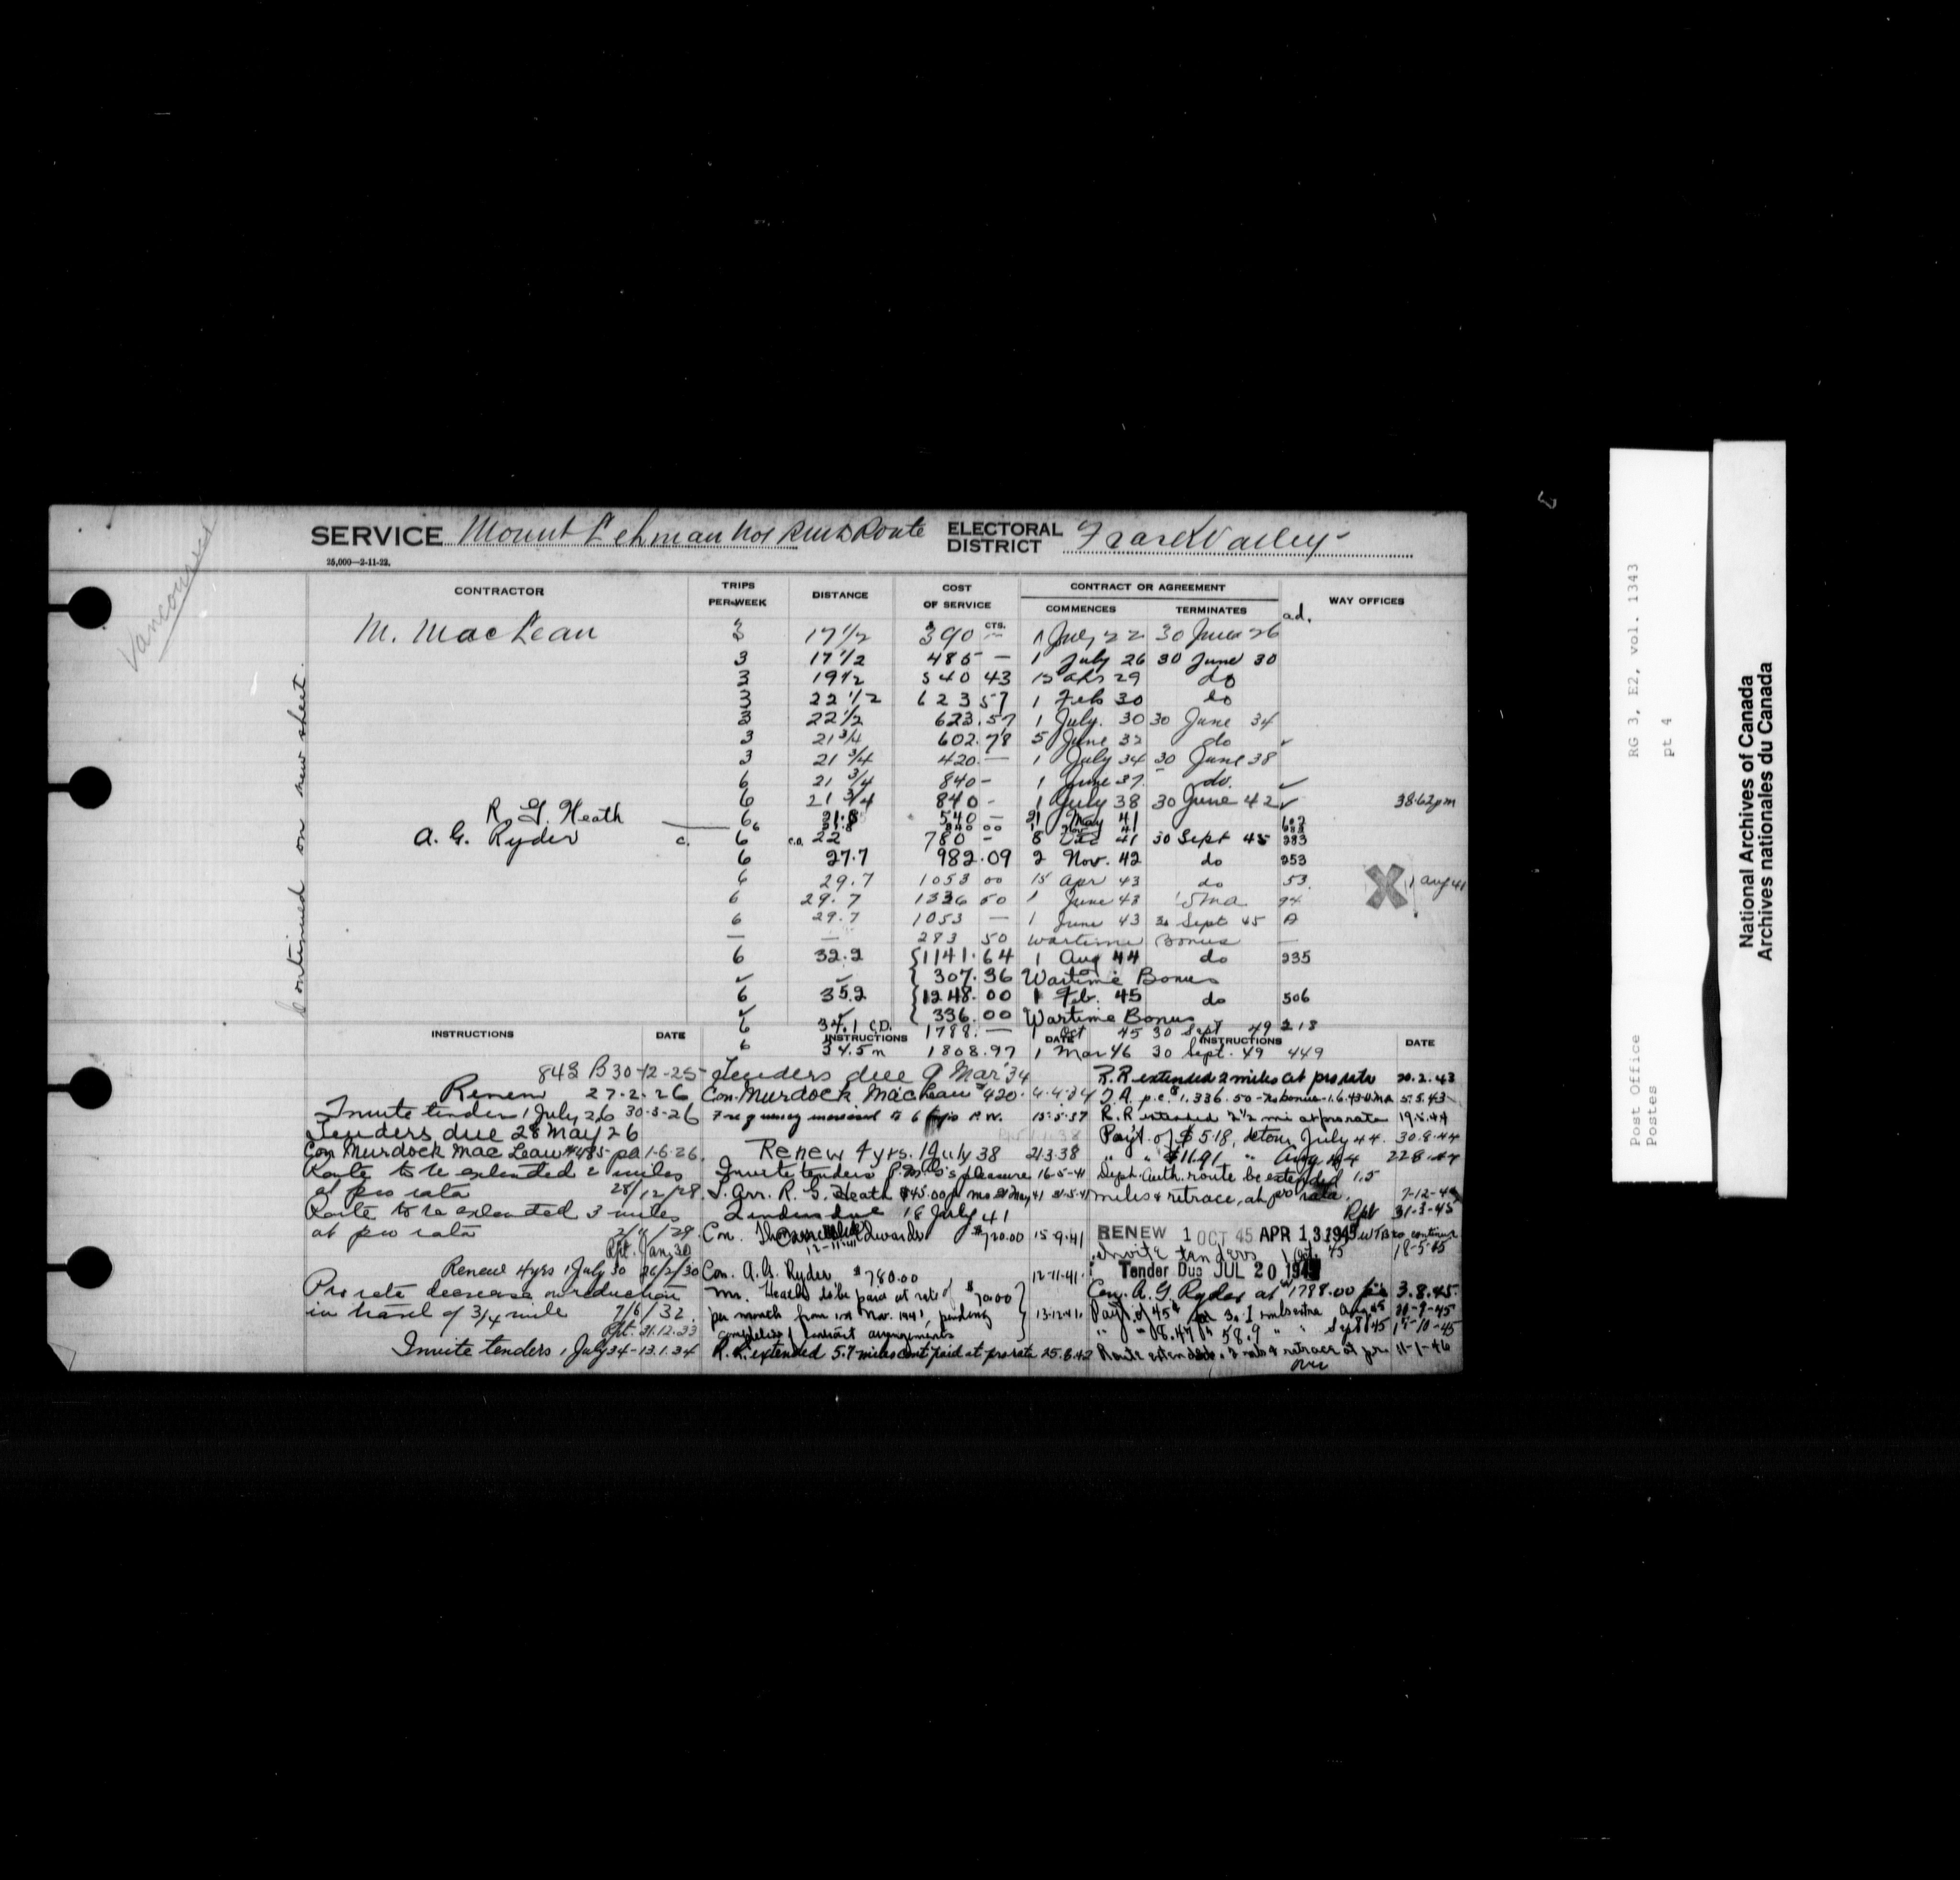 SERVICE Mount Lehman No 1 Rural Route ELECTORAL DISTRICT Fraser Valley
25,000—2-11-22.
Vancouver
Continued on new sheet.
CONTRACTOR TRIPS PER WEEK DISTANCE COST OF SERVICE CONTRACT OR AGREEMENT WAY OFFICES
CTS. COMMENCES TERMINATES ad.
M. MacLean 3 17 1/2 390 — 1 July 22 30 June 26
3 17 1/2 485 — 1 July 26 30 June 30
3 19 1/2 540 43 15 Apr 29 do
3 22 1/2 623 57 1 Feb 30 do
3 22 1/2 623.57 1 July. 30 30 June 34
3 21 3/4 602.78 5 June 32 do ✓
3 21 3/4 420. — 1 July 34 30 June 38
6 21 3/4 840 - 1 June 37 do. ✓
6 21 3/4 840 - 1 July 38 30 June 42 ✓ 38.62 pm
R. G. Heath 6 21.8 540 — 21 May 41
6 840 00 1 Nov 41
A. G. Ryder c. 6 22 780 - 8 Dec 41 30 Sept 45 283
6 27.7 982.09 2 Nov. 42 do 253
6 29.7 1053 00 15 Apr 43 do 53.
X 1 Aug 41
6 29.7 1336 50 1 June 43 94
6 29.7 1053 — 1 June 43 30 Sept 45 A
— — 283 50 Wartime Bonus —
6 32.2 1141.64 1 Aug 44 do 235
✓ ✓ 307.36 Wartime Bonus
6 35.2 1248.00 1 Feb. 45 do 506
✓ ✓ 336.00 Wartime Bonus
6 34.1 C.D. 1788. — 1 Oct 45 30 Sept 49 218
6 34.5 m 1808.97 1 Mar 46 30 Sept. 49 449
INSTRUCTIONS DATE INSTRUCTIONS DATE INSTRUCTIONS DATE
843 B 30-12-25
Renew 27-2-26
Invite tenders 1 July 26 30-3-26
Tenders due 28 May 26
Con Murdock Mac Lean $485- pa 1-6-26.
Route to be extended 2 miles
at pro rata 28/12/28.
Route to be extended 3 miles
at pro rata 2/11/29.
Rpt. Jan 30
Renew 4 yrs 1 July 30 26/2/30
Pro rata decrease on reduction
in travel of 3/4 mile 7/6/32.
Rpt. 31.12.33
Invite tenders 1 July 34 - 13.1.34
Tenders due 9 Mar '34
Con. Murdock MacLean $420. 4-4-34
Frequency increased to 6 trips P.W. 15-5-37
Renew 4 yrs. 1 July 38 21.3.38
Invite tenders P.M.G's pleasure 16-5-41
T. Arr. R. G. Heath $45.00 p. mo 21 May 41 21-5-41
Tenders due 18 July 41
Con. Edwards $720.00 15-9-41
12-11-41
Con. A. G. Ryder $780.00 12-11-41.
Mr. Heath to be paid at rate of $70.00
per month from 1st Nov. 1941, pending 13-12-41.
completion of contract arrangements
R.R. extended 5.7 miles cont paid at pro rata 25.8.42
R.R. extended 2 miles at pro rata 20.2.43
T.A. p.c. $1,336.50 - no bonus - 1.6.43 5.5.43
R.R. extended 2 1/2 mi at pro rata 19.5.44
Pay't. of $5.18, detour July 44. 30.8.44
" " $11.91 " Aug 44 22.8.44
Dept. auth. route be extended 1.5
miles & retrace, at pro rata. 7-12-44
Rpt 31-3-45
RENEW 1 OCT 45 APR 13 1945 WTB to continue
Invite tenders 1 Oct. 45 18-5-45
Tender Due JUL 20 194
Con. A. G. Ryder at $1788.00 pa 3.8.45.
Pay't of 45¢ 3.1 miles extra Aug 45 20-9-45
" " 8.47 58.9 " " Sept 45 15-10-45
Route extended .2 mls & retrace at pro 11-1-46
Over
Post Office
Postes
RG 3, E2, vol. 1343
pt 4
National Archives of Canada
Archives nationales du Canada